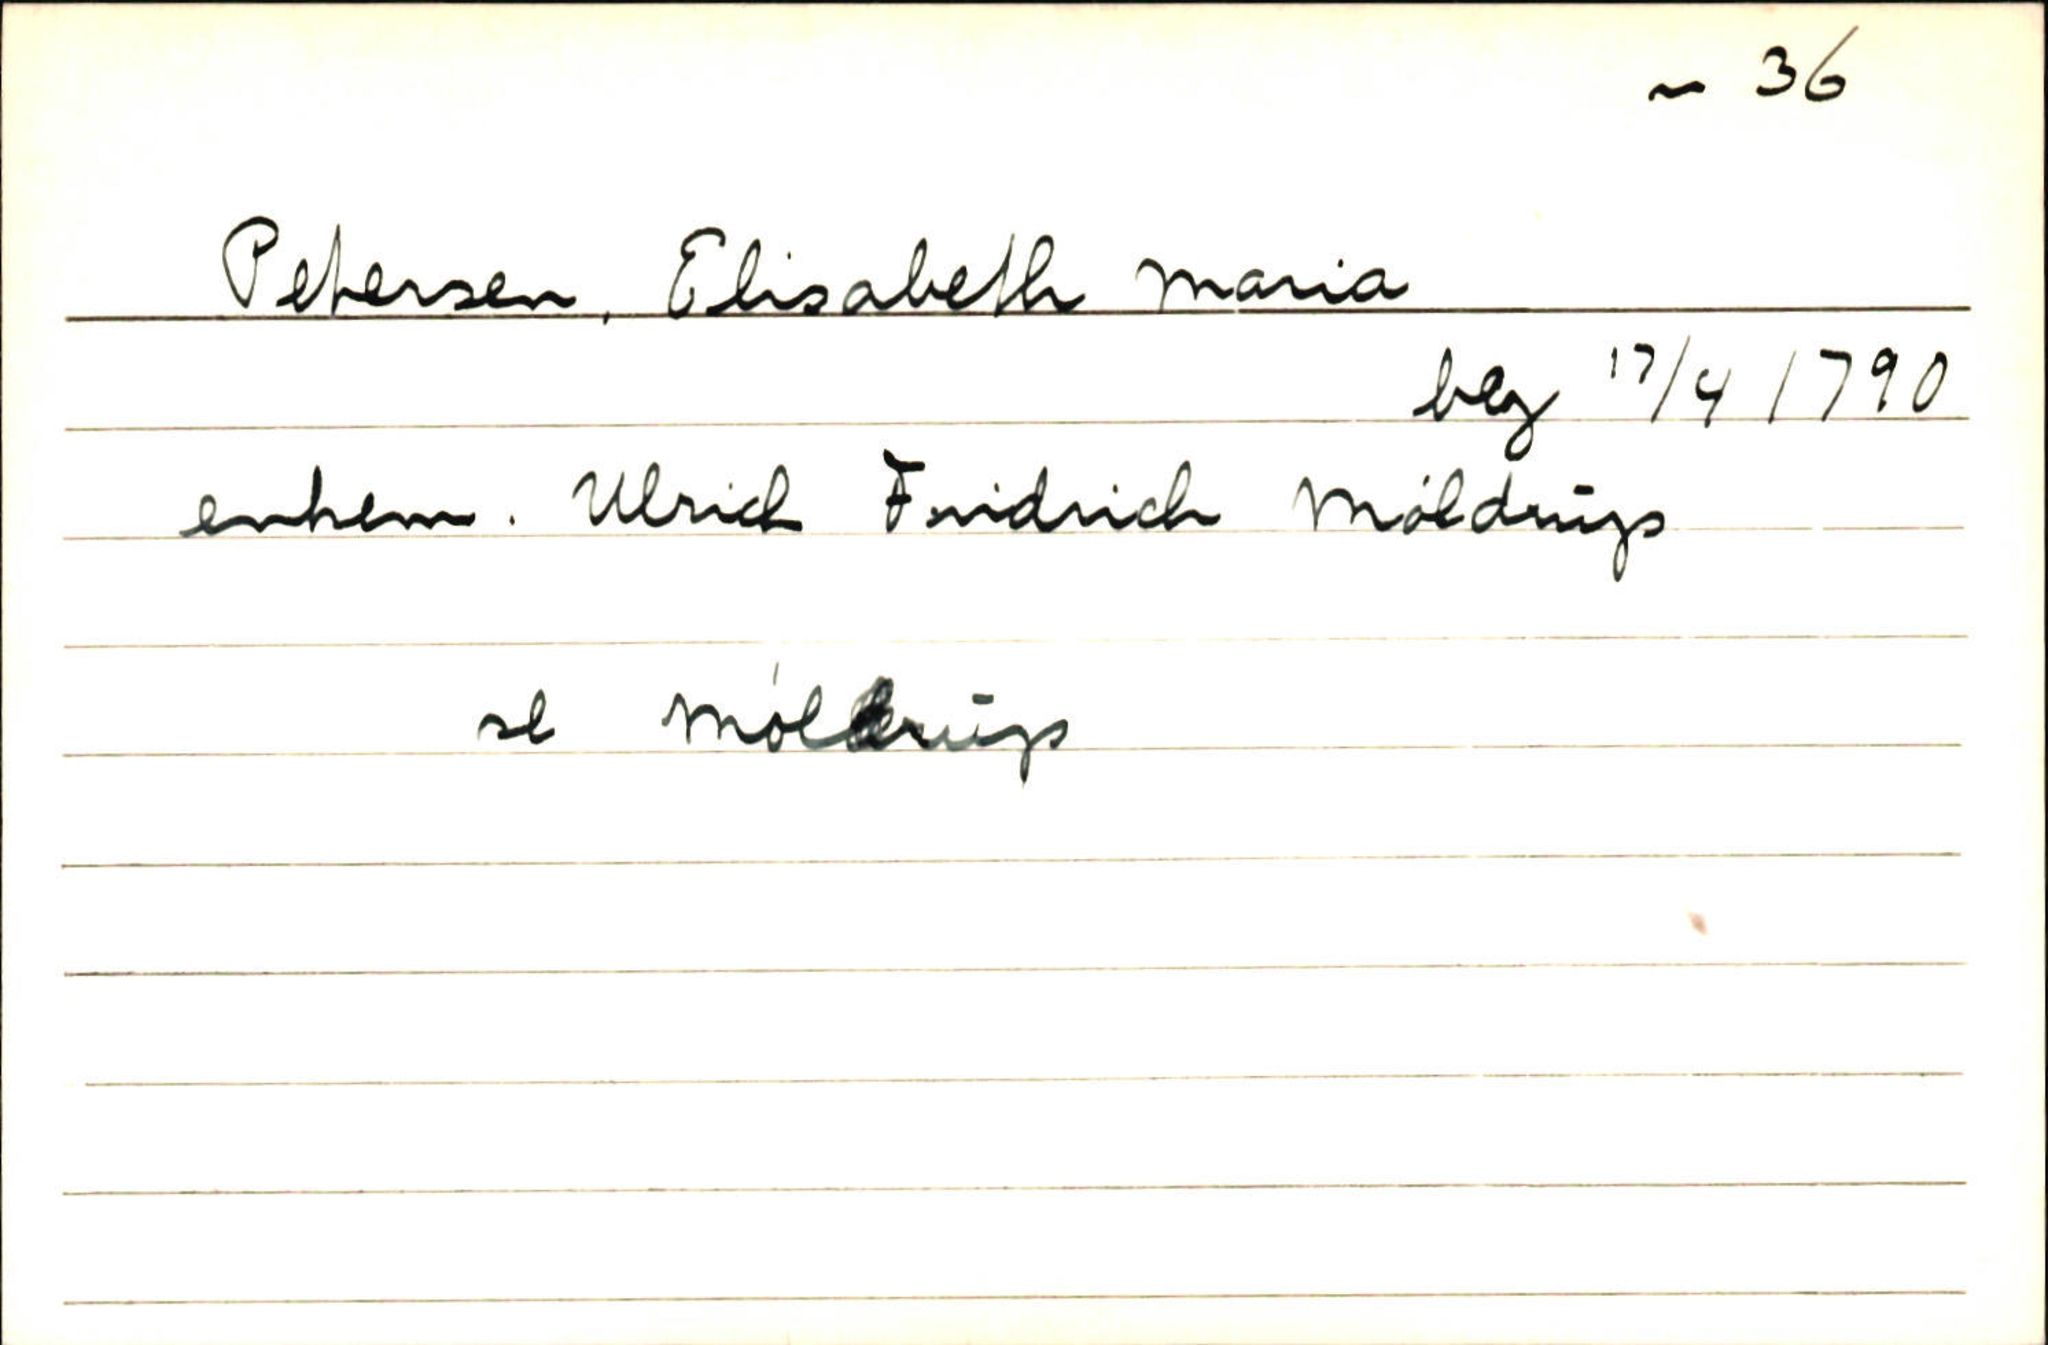 ~ 36
Petersen, Elisabeth Maria
beg 17/4 1790
enkem. Ulrich Fridrich Móldrūp
se Móldrūp